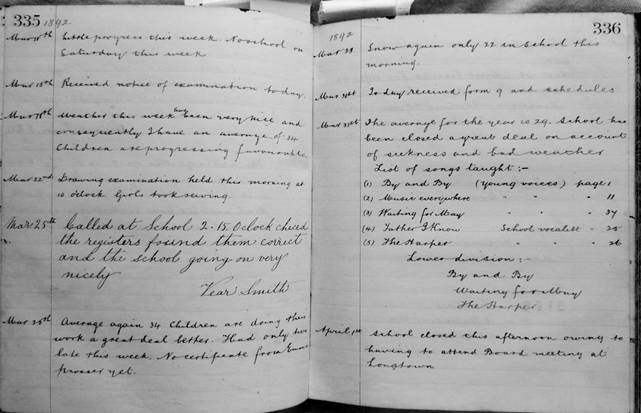 335 1892
Mar 11th Little progress this week. No school on
Saturday this week
Mar 15th Received notice of examination today.
Mar 18th Weather this week has been very nice and
consequently I have an average of 34
Children are progressing favourable
Mar 22nd Drawing examination held this morning at
10 o'clock Girls took sewing.
Mar 25th Called at School 2-15 Oclock checed
the registers found them correct
and the school going on very
nicely
Vear Smith
Mar 25th Average again 34 Children are doing their
work a great deal better. Had only two
late this week. No certificate from Emma
Prosser yet.
336
1892
Mar 29 Snow again only 22 in School this
morning.
Mar 31st Today received form 9 and schedules
Mar 31st The average for the year is 29. School has
been closed a great deal on account
of sickness and bad weather
List of songs taught :-
(1) By and By (Young voices) page 1
(2) Music everywhere " " 11
(3) Waiting for May " " 37
(4) Father I Know School vocalist - 25
(5) The Harper " " - 26
Lower division :-
By and By
Waiting for May
The Harper
April 1st School closed this afternoon owing to
having to attend Board meeting at
Longtown